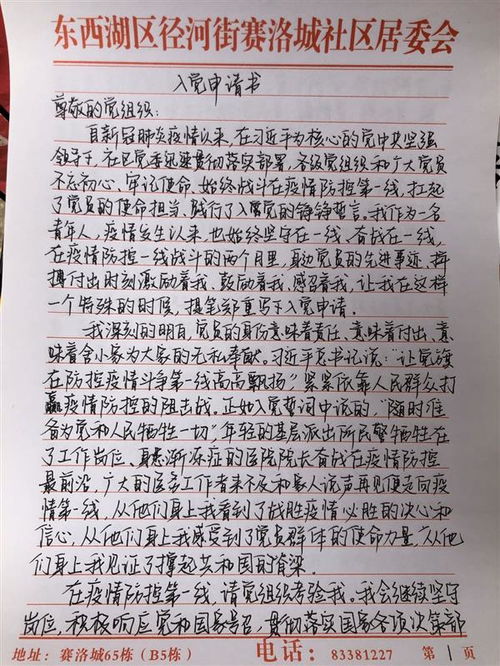 东西湖区径河街赛洛城社区居委会
入党申请书
尊敬的党组织：
自新冠肺炎疫情以来，在习近平为核心的党中央坚强
领导下，社区党委迅速贯彻落实部署，各级党组织和广大党员
不忘初心、牢记使命，始终战斗在疫情防控第一线，扛起
了党员的使命担当，践行了入党的铮铮誓言。我作为一名
青年人，疫情发生以来，也始终坚守在一线、奋战在一线，
在疫情防控一线战斗的两个月里，身边党员的先进事迹、拼
搏付出时刻激励着我、鼓励着我、感召着我，让我在这样
一个特殊的时候，提笔郑重写下入党申请。
我深刻的明白，党员的身份意味着责任、意味着付出、意
味着舍小家为大家的无私奉献。习近平总书记说：“让党旗
在防控疫情斗争第一线高高飘扬”紧紧依靠人民群众打
赢疫情防控的阻击战。正如入党誓词中说的，“随时准
备为党和人民牺牲一切”，年轻的基层派出所民警牺牲在
了工作岗位、身患渐冻症的医院院长奋战在疫情防控
最前沿，广大的医务工作者来不及和家人说声再见便走向疫
情第一线，从他们身上我看到了战胜疫情必胜的决心和
信心，从他们身上我感受到了党员群体的使命力量，从他
们身上我见证了撑起共和国的脊梁。
在疫情防控第一线，请党组织考验我。我会继续坚守
岗位，积极响应党和国家号召，贯彻落实国家各项决策部
地址：赛洛城65栋（B5栋） 电话：83381227 第1页